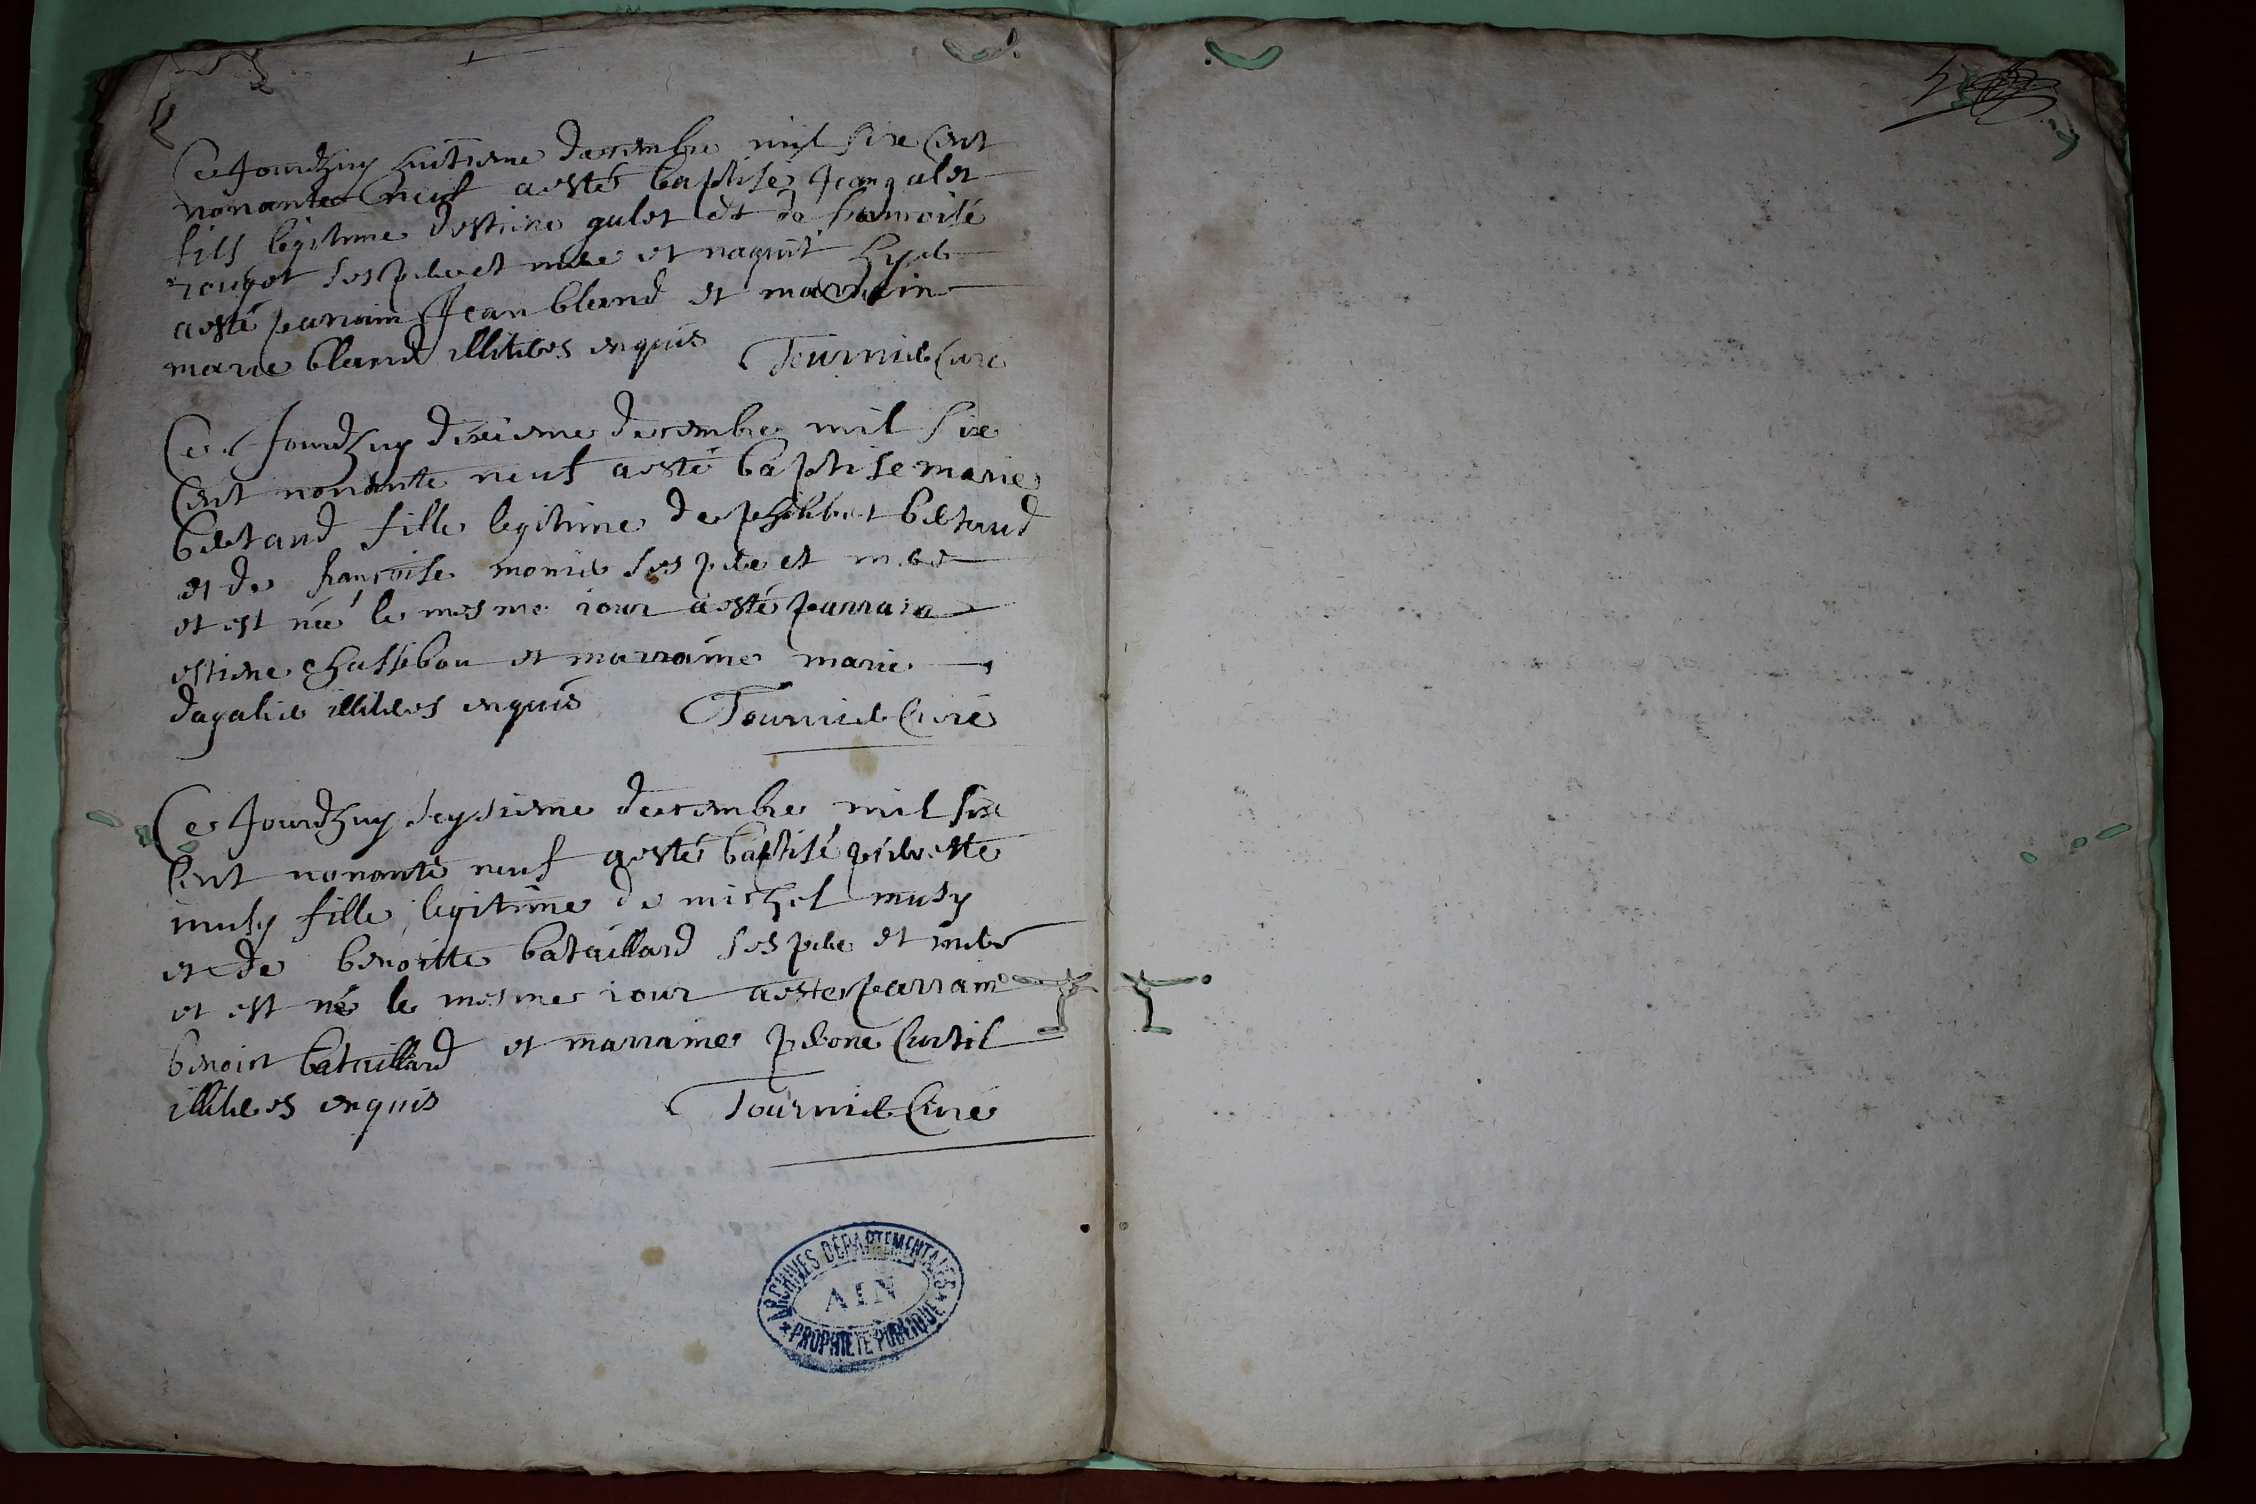 Ce Jourdhuy huitieme decembre mil six Cent
nonante neuf a esté baptise Jean gulet
fils legitime destiene gulet et de francoise
rouget ses pere et mere et naquit hyer
a esté parrain Jean bland et marraine
marie bland illiteres enquis Tournier Curé
Ce Jourdhuy dixieme decembre mil six
Cent nonante neuf a esté baptise marie
bertaud fille legitime de philibert bertaud
et de françoise monier ses pere et mere
et est née le mesme iour a esté parrain
estiene chassibou et marraine marie
dagalier illiteres enquis Tournier Curé
Ce Jourdhuy seysieme decembre mil six
Cent nonante neuf a esté baptisé
musy fille legitime de michel musy
et de benoitte bataillard ses pere et mere
et est né le mesme iour a este parrain
benoist bataillard et marraine perone Curtil
illiteres enquis Tournier Curé
ARCHIVES DÉPARTEMENTALES
AIN
* PROPRIÉTÉ PUBLIQUE *